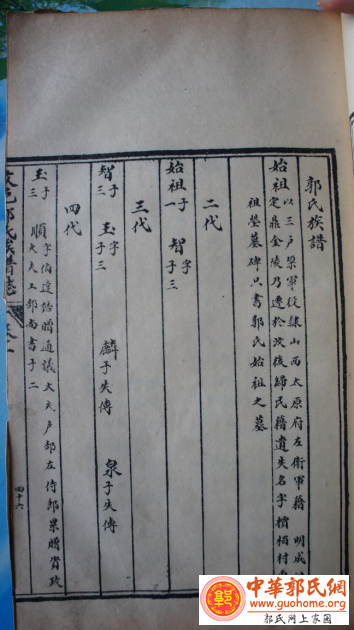 郭氏族譜
始祖 以三戶梁軍役隸山西太原府左衛軍籍 明成
定鼎金陵乃遷於汶後歸民籍遺失名字櫝栢村
祖塋墓碑只書郭氏始祖之墓
二代
始祖子一 智字 子三
三代
智子三 玉字 子三 麟子失傳 泉子失傳
四代
玉子三 順字伯達誥贈通議大夫戶部左侍郎累贈資政
大夫工部尚書子二
郭氏族譜誌
四十六
中華郭氏網
www.guohome.org
郭氏網上家園